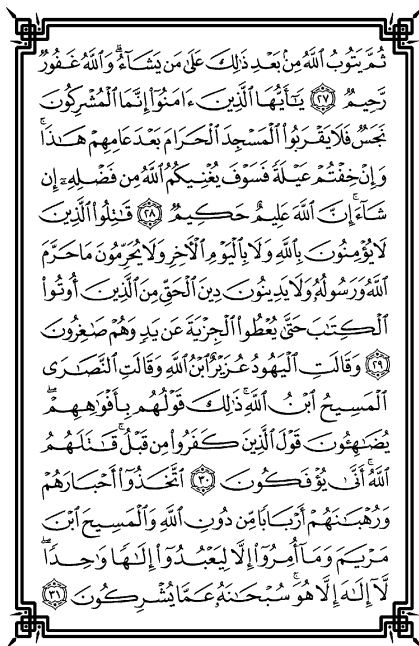 ثُمَّ يَتُوبُ ٱللَّهُ مِنۢ بَعْدِ ذَٰلِكَ عَلَىٰ مَن يَشَآءُ ۗ وَٱللَّهُ غَفُورٌ
رَّحِيمٌ ٢٧ يَـٰٓأَيُّهَا ٱلَّذِينَ ءَامَنُوٓا۟ إِنَّمَا ٱلْمُشْرِكُونَ
نَجَسٌ فَلَا يَقْرَبُوا۟ ٱلْمَسْجِدَ ٱلْحَرَامَ بَعْدَ عَامِهِمْ هَـٰذَا ۚ
وَإِنْ خِفْتُمْ عَيْلَةً فَسَوْفَ يُغْنِيكُمُ ٱللَّهُ مِن فَضْلِهِۦٓ إِن
شَآءَ ۚ إِنَّ ٱللَّهَ عَلِيمٌ حَكِيمٌ ٢٨ قَـٰتِلُوا۟ ٱلَّذِينَ
لَا يُؤْمِنُونَ بِٱللَّهِ وَلَا بِٱلْيَوْمِ ٱلْـَٔاخِرِ وَلَا يُحَرِّمُونَ مَا حَرَّمَ
ٱللَّهُ وَرَسُولُهُۥ وَلَا يَدِينُونَ دِينَ ٱلْحَقِّ مِنَ ٱلَّذِينَ أُوتُوا۟
ٱلْكِتَـٰبَ حَتَّىٰ يُعْطُوا۟ ٱلْجِزْيَةَ عَن يَدٍ وَهُمْ صَـٰغِرُونَ
٢٩ وَقَالَتِ ٱلْيَهُودُ عُزَيْرٌ ٱبْنُ ٱللَّهِ وَقَالَتِ ٱلنَّصَـٰرَى
ٱلْمَسِيحُ ٱبْنُ ٱللَّهِ ۖ ذَٰلِكَ قَوْلُهُم بِأَفْوَٰهِهِمْ ۖ
يُضَـٰهِـُٔونَ قَوْلَ ٱلَّذِينَ كَفَرُوا۟ مِن قَبْلُ ۚ قَـٰتَلَهُمُ
ٱللَّهُ ۚ أَنَّىٰ يُؤْفَكُونَ ٣٠ ٱتَّخَذُوٓا۟ أَحْبَارَهُمْ
وَرُهْبَـٰنَهُمْ أَرْبَابًا مِّن دُونِ ٱللَّهِ وَٱلْمَسِيحَ ٱبْنَ
مَرْيَمَ وَمَآ أُمِرُوٓا۟ إِلَّا لِيَعْبُدُوٓا۟ إِلَـٰهًا وَٰحِدًا ۖ
لَّآ إِلَـٰهَ إِلَّا هُوَ ۚ سُبْحَـٰنَهُۥ عَمَّا يُشْرِكُونَ ٣١